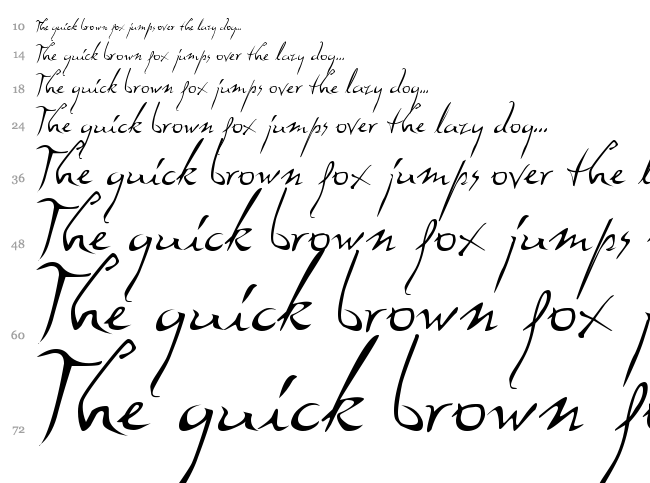 10 The quick brown fox jumps over the lazy dog...
14 The quick brown fox jumps over the lazy dog...
18 The quick brown fox jumps over the lazy dog...
24 The quick brown fox jumps over the lazy dog...
36 The quick brown fox jumps over the l
48 The quick brown fox jumps
60 The quick brown fox
72 The quick brown fo